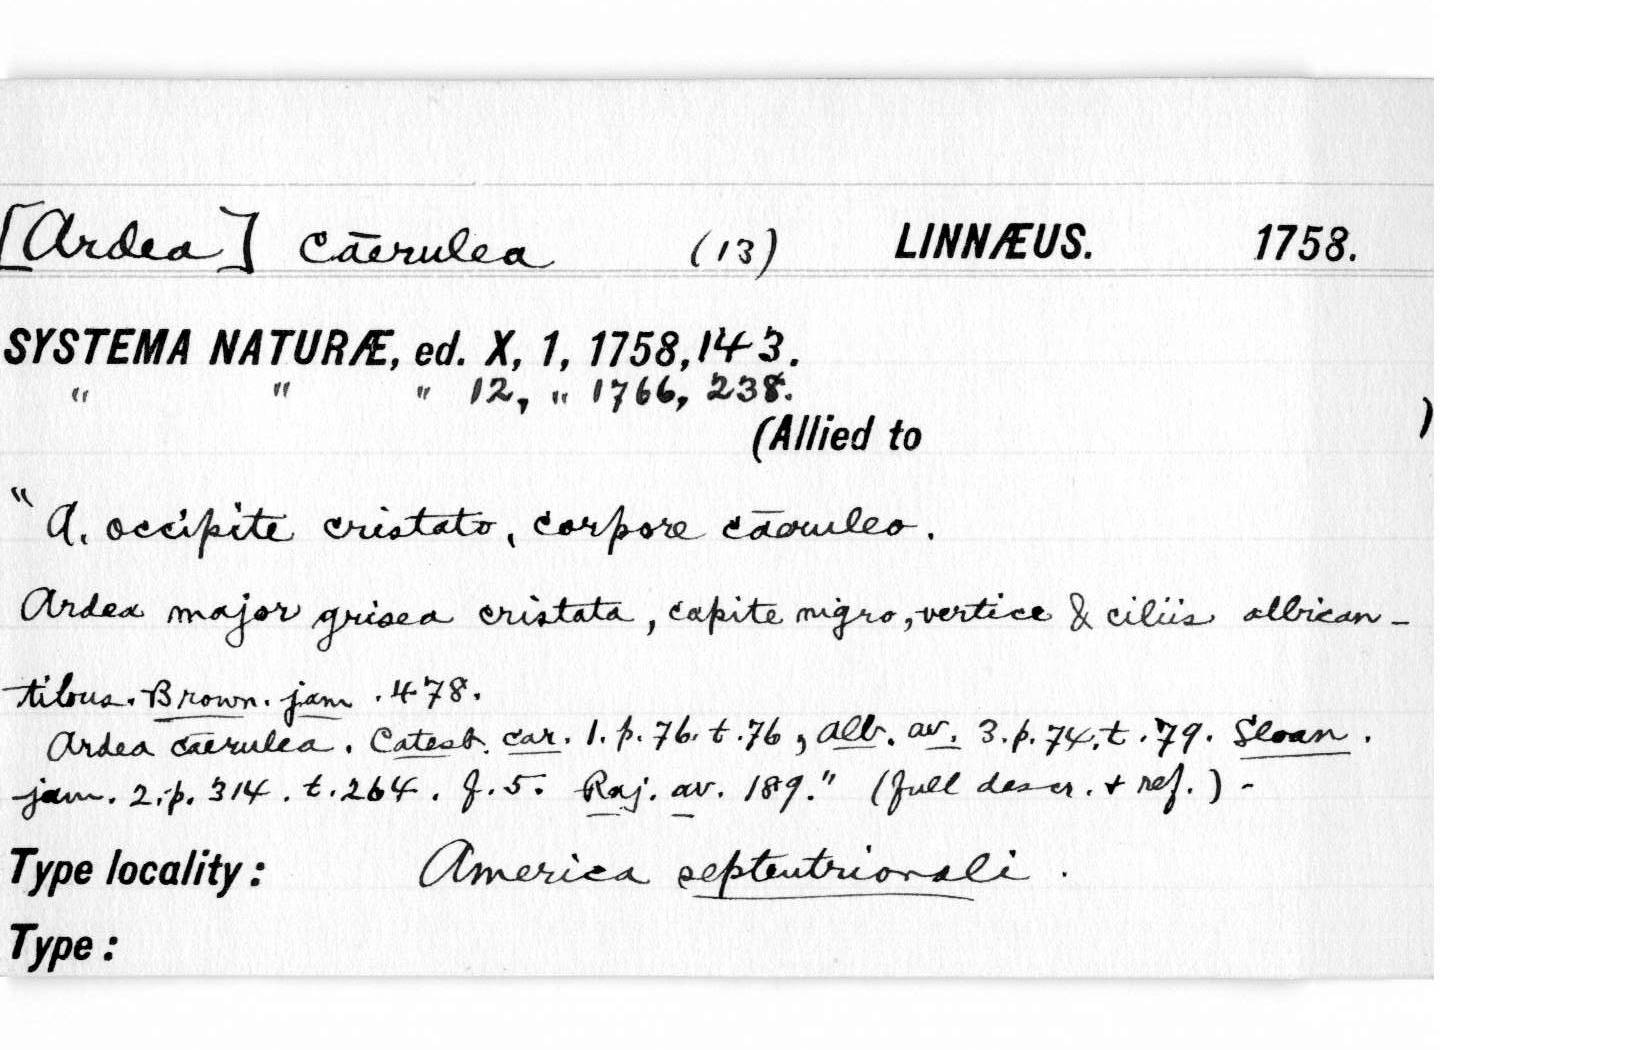 [Ardea] cāerulea (13) LINNÆUS. 1758.
SYSTEMA NATURÆ, ed. X, 1, 1758, 143.
" " " 12, " 1766, 238.
(Allied to )
"A. occipite cristato, corpore cāeruleo.
Ardea major grisea cristata, capite nigro, vertice & ciliis albican-
tibus. Brown. jam. 478.
Ardea cāerulea. Catesb. car. 1. p. 76. t. 76, Alb. av. 3. p. 74. t. 79. Sloan.
jam. 2. p. 314. t. 264. f. 5. Raj. av. 189." (full descr. + ref.) -
Type locality: America septentrionali.
Type: